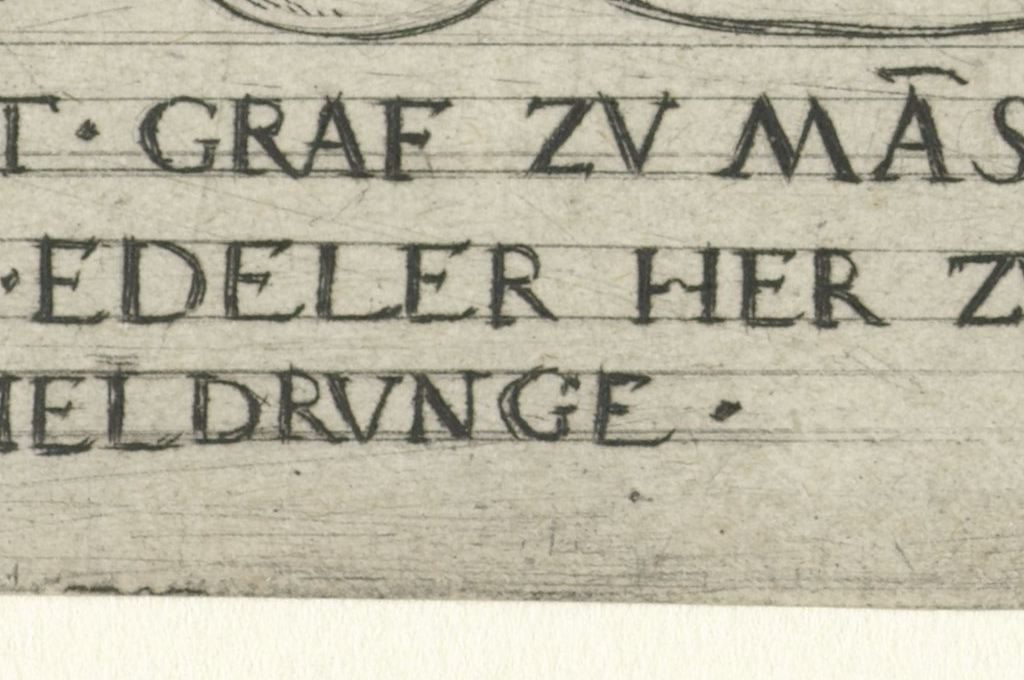 T · GRAF ZV MĀS
· EDELER HER ZV
HELDRVNGE ·